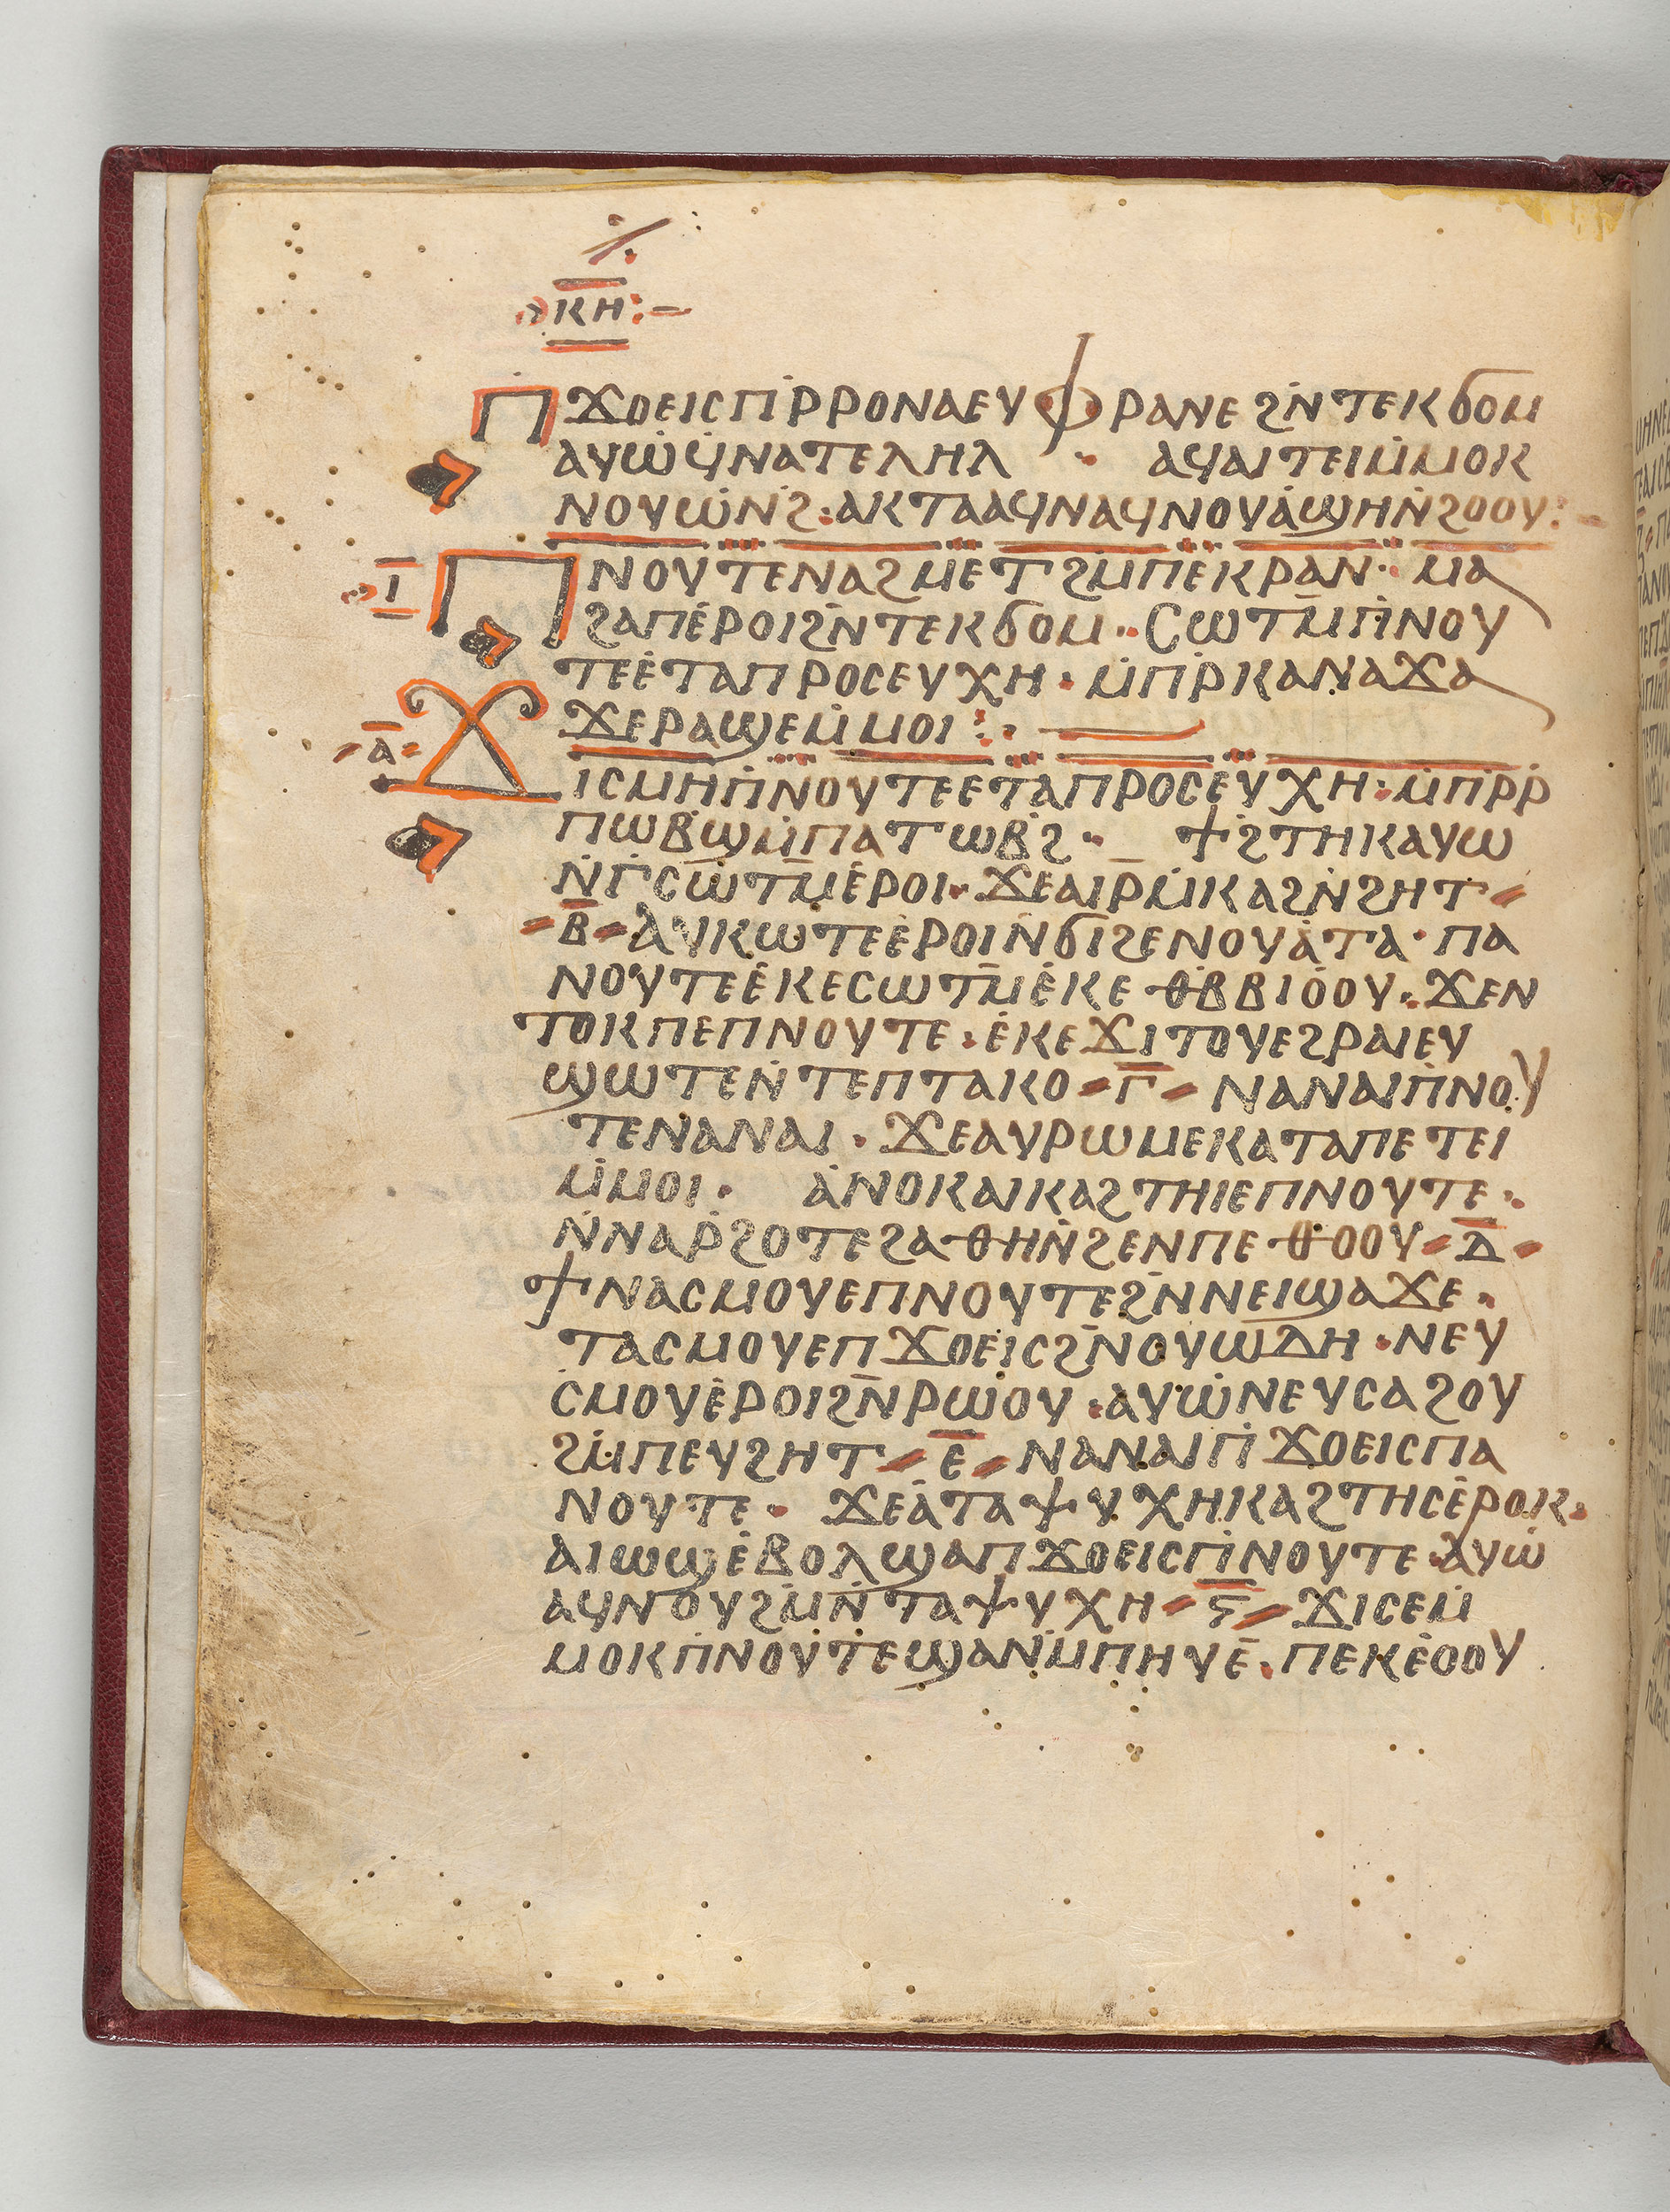 ⲕⲏ:–
ⲡϫⲟⲉⲓⲥⲡⲣ̇ⲣⲟⲛⲁⲉⲩⲫⲣⲁⲛⲉϩⲛ̇ⲧⲉⲕϭⲟⲙ
ⲁⲩⲱ̇ϥ̇ⲛⲁⲧⲉⲗⲏⲗ · ⲁϥⲁⲓⲧⲉⲓⲙ̇ⲙⲟⲕ
ⲛⲟⲩⲱⲛ̇ϩ · ⲁⲕⲧⲁⲁϥⲛⲁϥⲛⲟⲩⲁ̇ϣⲏⲛ̇ϩⲟⲟⲩ:–
ⲓ̅ ⲡⲛⲟⲩⲧⲉⲛⲁϩⲙⲉⲧϩⲙ̇ⲡⲉⲕⲣⲁⲛ · ⲙⲁ
ϩⲁⲡⲉ̇ⲣⲟⲓϩⲛ̇ⲧⲉⲕϭⲟⲙ · ⲥⲱⲧⲙ̅ⲡ̇ⲛⲟⲩ
ⲧⲉⲉ̇ⲧⲁⲡⲣⲟⲥⲉⲩⲭⲏ · ⲙ̇ⲡⲣ̇ⲕⲁⲛⲁϫⲁ
ϫⲉⲣⲁϣⲉⲙ̇ⲙⲟⲓ:·–
ⲁ̅ ϫⲓⲥⲙⲏⲡ̇ⲛⲟⲩⲧⲉⲉⲧⲁⲡⲣⲟⲥⲉⲩⲭⲏ · ⲙ̇ⲡⲣ̇ⲣ
ⲡⲱⲃϣⲙ̇ⲡⲁⲧⲱⲃϩ̇ · ϯϩⲧⲏⲕⲁⲩⲱ
ⲛ̇ⲅ̇ⲥⲱⲧⲙ̅ⲉ̇ⲣⲟⲓ · ϫⲉⲁⲓⲣ̅ⲙ̇ⲕⲁϩⲛ̇ϩⲏⲧ
ⲃ̅ ⲁⲩⲕⲱⲧⲉⲉ̇ⲣⲟⲓⲛ̇ϭⲓϩⲉⲛⲟⲩⲁ̇ⲧⲁ · ⲡⲁ
ⲛⲟⲩⲧⲉⲉ̇ⲕⲉⲥⲱⲧⲙ̅ⲉ̇ⲕⲉⲑⲃ̇ⲃⲓⲟ̇ⲟⲩ · ϫⲉⲛ
ⲧⲟⲕⲡⲉⲡⲛⲟⲩⲧⲉ · ⲉ̇ⲕⲉϫⲓⲧⲟⲩⲉϩⲣⲁⲓⲉⲩ
ϣⲱⲧⲉⲛ̇ⲧⲉⲡⲧⲁⲕⲟ ⲅ̅ ⲛⲁⲛⲁⲓⲡ̇ⲛⲟⲩ
ⲧⲉⲛⲁⲛⲁⲓ · ϫⲉⲁⲩⲣⲱⲙⲉⲕⲁⲧⲁⲡⲉⲧⲉⲓ
ⲙ̇ⲙⲟⲓ · ⲁ̇ⲛⲟⲕⲁⲓⲕⲁϩⲧⲏⲓⲉⲡⲛⲟⲩⲧⲉ ·
ⲛ̇ⲛⲁⲣ̇ϩⲟⲧⲉϩⲁⲑⲏⲛ̇ϩⲉⲛⲡⲉⲑⲟⲟⲩ ⲇ̅
ϯⲛⲁⲥⲙⲟⲩⲉⲡⲛⲟⲩⲧⲉϩⲛ̅ⲛⲉⲓϣⲁϫⲉ ·
ⲧⲁⲥⲙⲟⲩⲉⲡϫⲟⲉⲓⲥϩⲛ̅ⲟⲩⲱⲇⲏ · ⲛⲉⲩ
ⲥⲙⲟⲩⲉ̇ⲣⲟⲓϩⲛ̅ⲣⲱⲟⲩ · ⲁⲩⲱ̇ⲛⲉⲩⲥⲁϩⲟⲩ
ϩⲙ̇ⲡⲉⲩϩⲏⲧ ⲉ̅ ⲛⲁⲛⲁⲓⲡ̇ϫⲟⲉⲓⲥⲡⲁ
ⲛⲟⲩⲧⲉ · ϫⲉⲁ̇ⲧⲁⲯⲩⲭⲏⲕⲁϩⲧⲏⲥⲉ̇ⲣⲟⲕ ·
ⲁⲓⲱϣⲉ̇ⲃⲟⲗϣⲁⲡϫⲟⲉⲓⲥⲡ̇ⲛⲟⲩⲧⲉ · ⲁⲩⲱ̇
ⲁϥⲛⲟⲩϩⲙ̇ⲛ̇ⲧⲁⲯⲩⲭⲏ ⲋ̅ ϫⲓⲥⲉⲙ̇
ⲙⲟⲕⲡ̇ⲛⲟⲩⲧⲉϣⲁⲛⲙ̇ⲡⲏⲩⲉ̇ · ⲡⲉⲕⲉ̇ⲟⲟⲩ